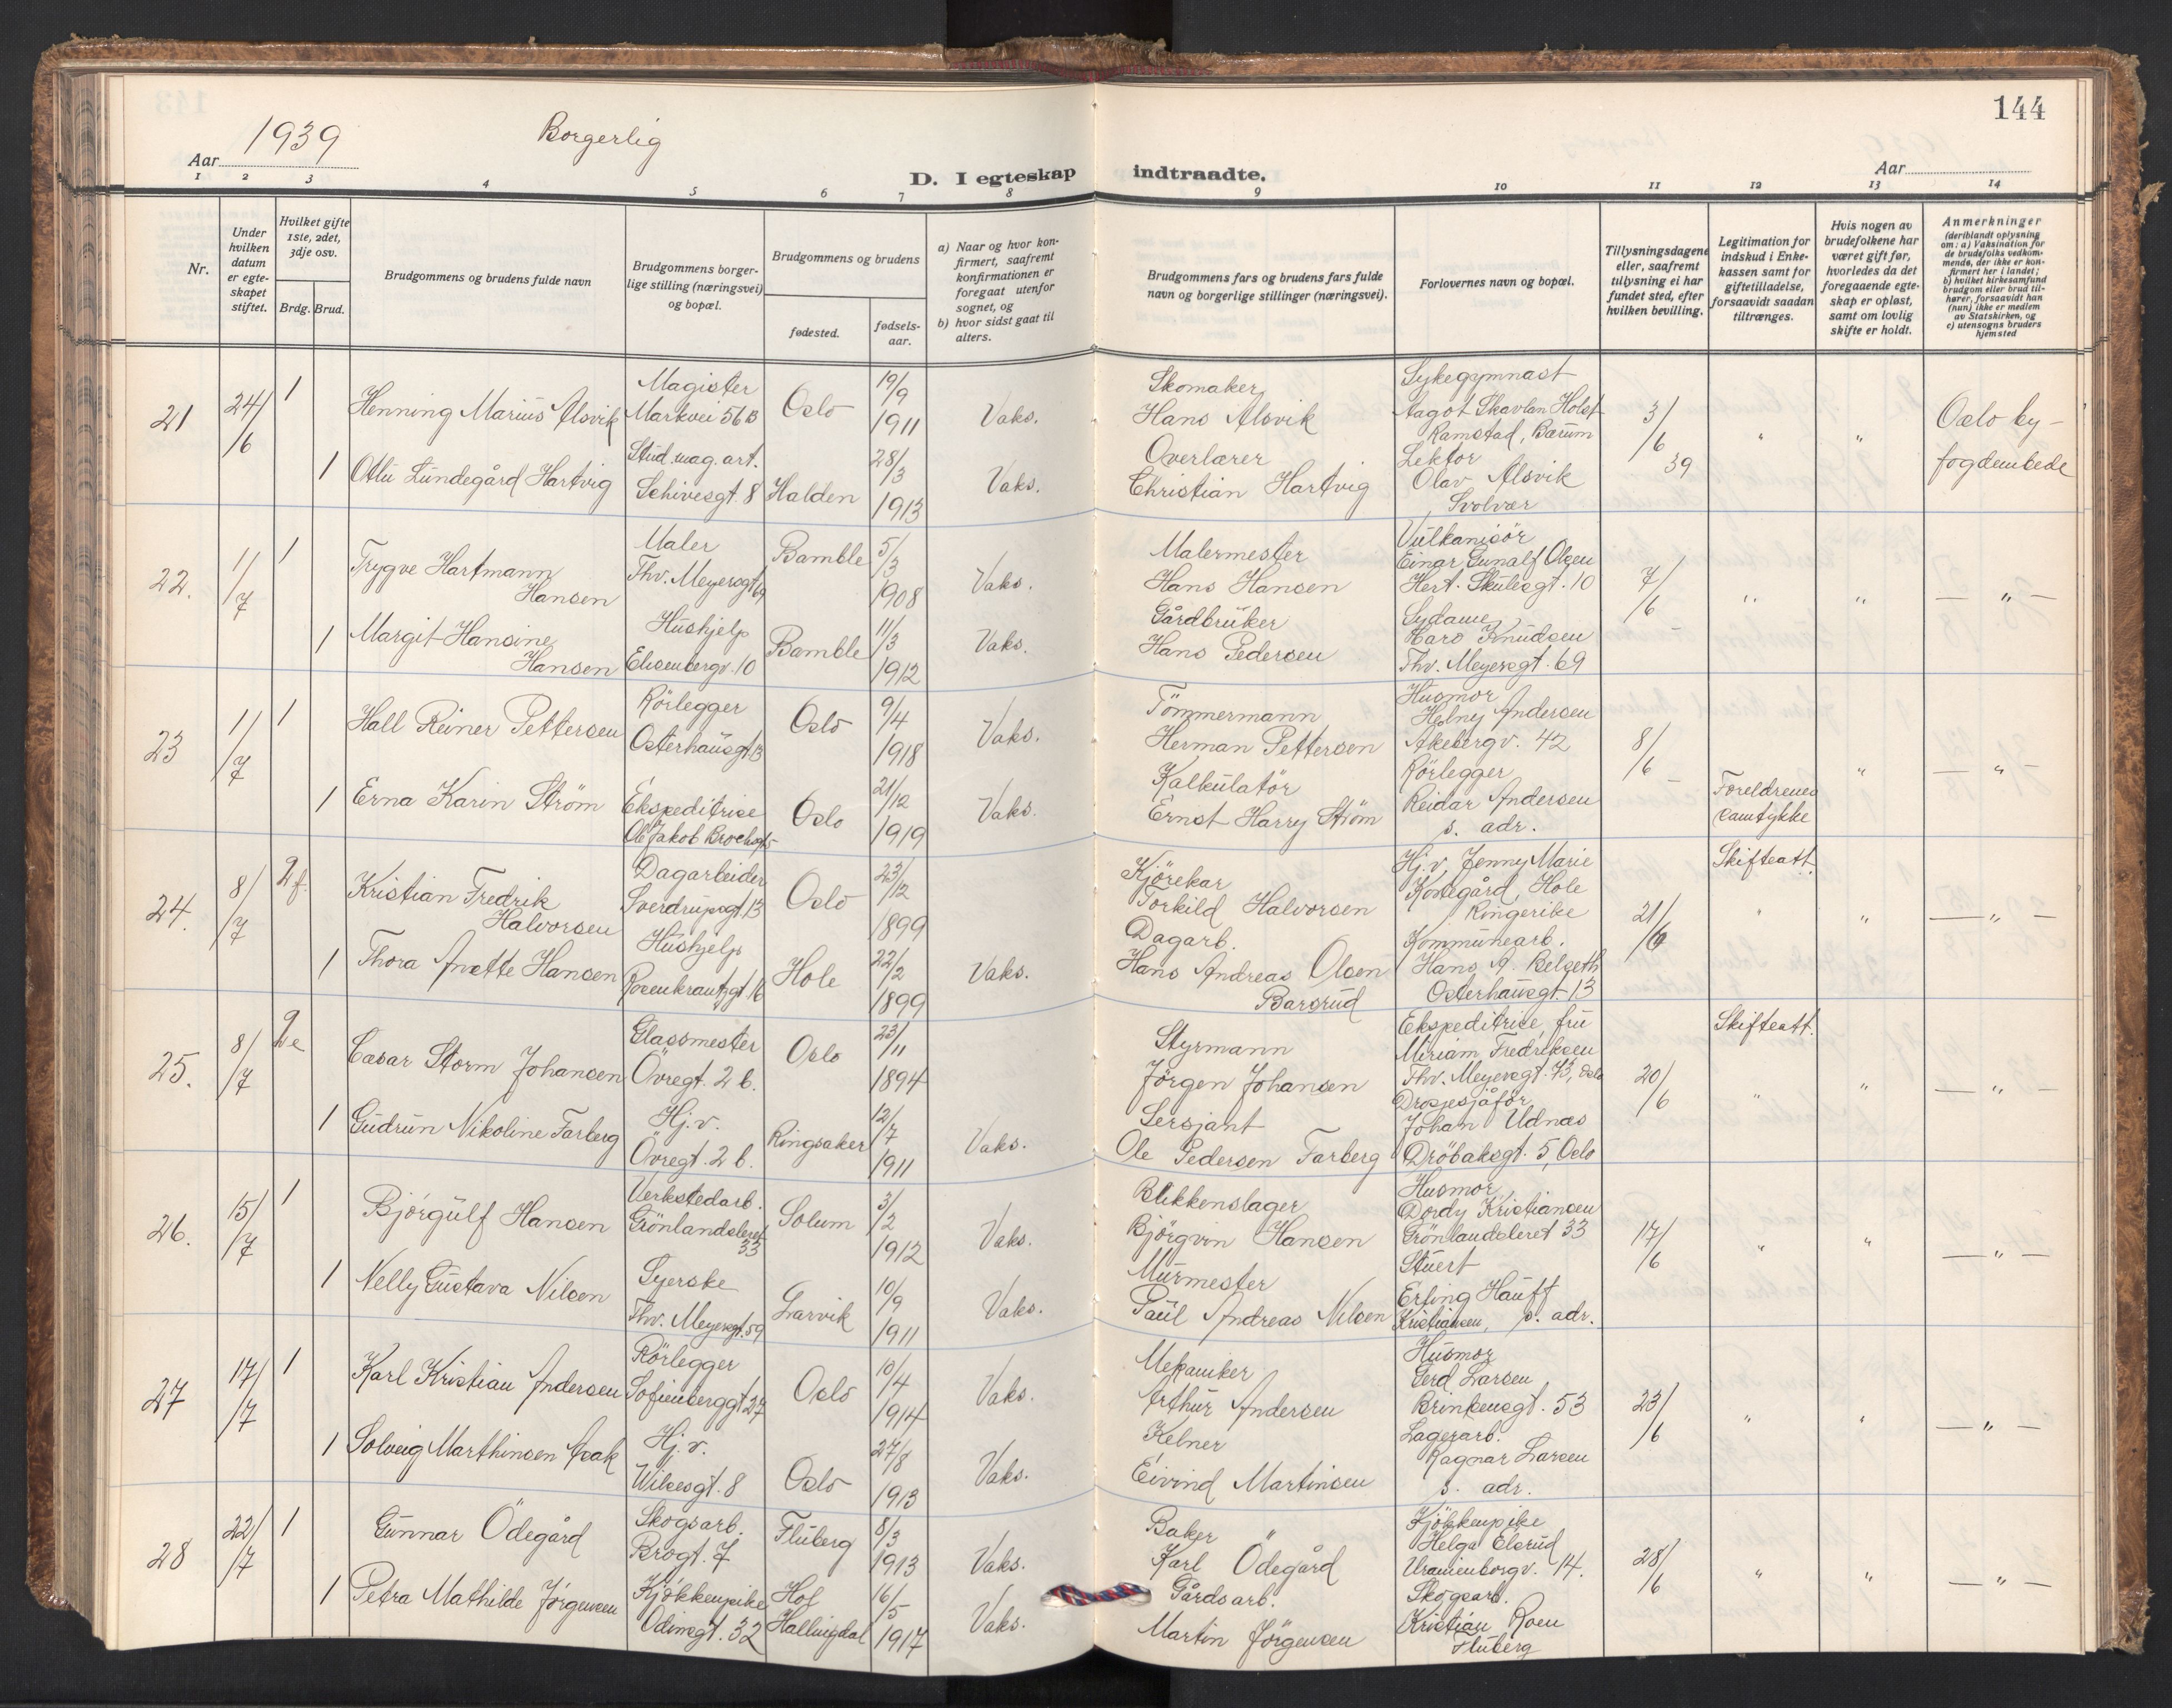 144
Aar 1939
Borgerlig
Aar
D. I egteskap indtraadte.
1 2 3 4 5 6 7 8 9 10 11 12 13 14
Nr.
Under hvilken datum er egteskapet stiftet.
Hvilket gifte 1ste, 2det, 3dje osv.
Brdg. Brud.
Brudgommens og brudens fulde navn
Brudgommens borgerlige stilling (næringsvei) og bopæl.
Brudgommens og brudens
fødested.
fødselsaar.
a) Naar og hvor konfirmert, saafremt konfirmationen er foregaat utenfor sognet, og
b) hvor sidst gaat til alters.
Brudgommens fars og brudens fars fulde navn og borgerlige stillinger (næringsvei).
Forlovernes navn og bopæl.
Tillysningsdagene eller, saafremt tillysning ei har fundet sted, efter hvilken bevilling.
Legitimation for indskud i Enkekassen samt for giftetilladelse, forsaavidt saadan tiltrænges.
Hvis nogen av brudefolkene har været gift før, hvorledes da det foregaaende egteskap er opløst, samt om lovlig skifte er holdt.
Anmerkninger
(deriblandt oplysning om: a) Vaksination for de brudefolks vedkommende, der ikke er konfirmert her i landet;
b) hvilket kirkesamfund brudgom eller brud tilhører, forsaavidt han (hun) ikke er medlem av Statskirken, og
c) utensogns bruders hjemsted
21 24/6 1 Henning Marius Alsvik Magister Markvei 56 B Oslo 19/9 1911 Vaks. Skomaker Hans Alsvik Sykegymnast Aagot Skavlan Holst Ramstad, Bærum 3/6 39 " " Oslo by-
1 Otlu Lundegård Hartvig Stud. mag. art. Schivesgt. 8 Halden 28/3 1913 Vaks. Overlærer Christian Hartvig Lektor Olav Alsvik Svolvær fogdembede
22. 1/7 1 Trygve Hartmann Hansen Maler Thv. Meyersgt 69 Bamble 5/3 1908 Vaks. Malermester Hans Hansen Vulkanisør Einar Gunalf Olsen Hert. Skulesgt. 10 7/6 " " — " —
1 Margit Hansine Hansen Hushjelp Elisenbergv. 10 Bamble 11/3 1912 Vaks. Gårdbruker Hans Pedersen Sydame Karo Knudsen Thv. Meyersgt. 69
23 1/7 1 Hall Reiner Pettersen Rörlegger Osterhausgt 13 Oslo 9/4 1918 Vaks. Tömmermann Herman Pettersen Husmor Helny Andersen Akebergv. 42 8/6 " — " —
1 Erna Karin Strøm Ekspeditrise Ole Jakob Brochsgt 5 Oslo 21/12 1919 Vaks. Kalkulatör Ernst Harry Strøm Rörlegger Reidar Andersen s. adr. Foreldrenes samtykke
24. 8/7 2 f. Kristian Fredrik Halvorsen Dagarbeider Sverdrupsgt. 13 Oslo 23/12 1899 Kjörekar Torkild Halvorsen Hj.v. Jenny Marie Kortegård, Hole Ringerike 21/6 Skifteatt. " " — " —
1 Thora Anette Hansen Hushjelp Rosenkrantzgt 16 Hole 22/2 1899 Vaks. Dagarb. Hans Andreas Olsen Barsrud Kommunearb. Hans A. Belgeth Osterhausgt. 13
25. 8/7 2 e Cæsar Storm Johansen Glassmester Övregt. 2 b. Oslo 23/11 1894 Styrmann Jörgen Johansen Ekspeditrise, fru Miriam Fredriksen Thv. Meyersgt. 73, Oslo 20/6 Skifteatt. " " — " —
1 Gudrun Nikoline Farberg Hj.v. Övregt. 2 b. Ringsaker 12/7 1911 Vaks. Sersjant Ole Pedersen Farberg Drosjesjåför Johan Udnæs Dröbaksgt. 5, Oslo
26. 15/7 1 Björgulf Hansen Verkstedarb. Grönlandsleret 33 Solum 3/2 1912 Vaks. Blikkenslager Björgvin Hansen Husmor Dordy Kristiansen Grönlandsleret 33 17/6 " " — " —
1 Nelly Gustava Nilsen Syerske Thv. Meyersgt. 59 Larvik 10/9 1911 Vaks. Murmester Paul Andreas Nilsen Stuert Erling Hauff Kristiansen, s. adr.
27 17/7 1 Karl Kristian Andersen Rörlegger Sofienberggt 27 Oslo 10/4 1914 Vaks. Mekaniker Arthur Andersen Husmor Gerd Larsen Brinkensgt. 53 23/6 " " — " —
1 Solveig Marthinsen Asak Hj.v. Wilsesgt. 8 Oslo 27/8 1913 Vaks. Kelner Eivind Martinsen Lagerarb. Ragnar Larsen s. adr.
28 22/7 1 Gunnar Ödegård Skogsarb. Brogt. 7 Fluberg 8/3 1913 Vaks. Baker Karl Ödegård Kjökkenpike Helga Elsrud Uranienborgv. 14. 28/6 " " — " —
1 Petra Mathilde Jörgensen Kjökkenpike Odinsgt. 32 Hof Hallingdal 16/5 1917 Vaks. Gårdsarb. Martin Jörgensen Skogsarb. Kristian Roen Fluberg